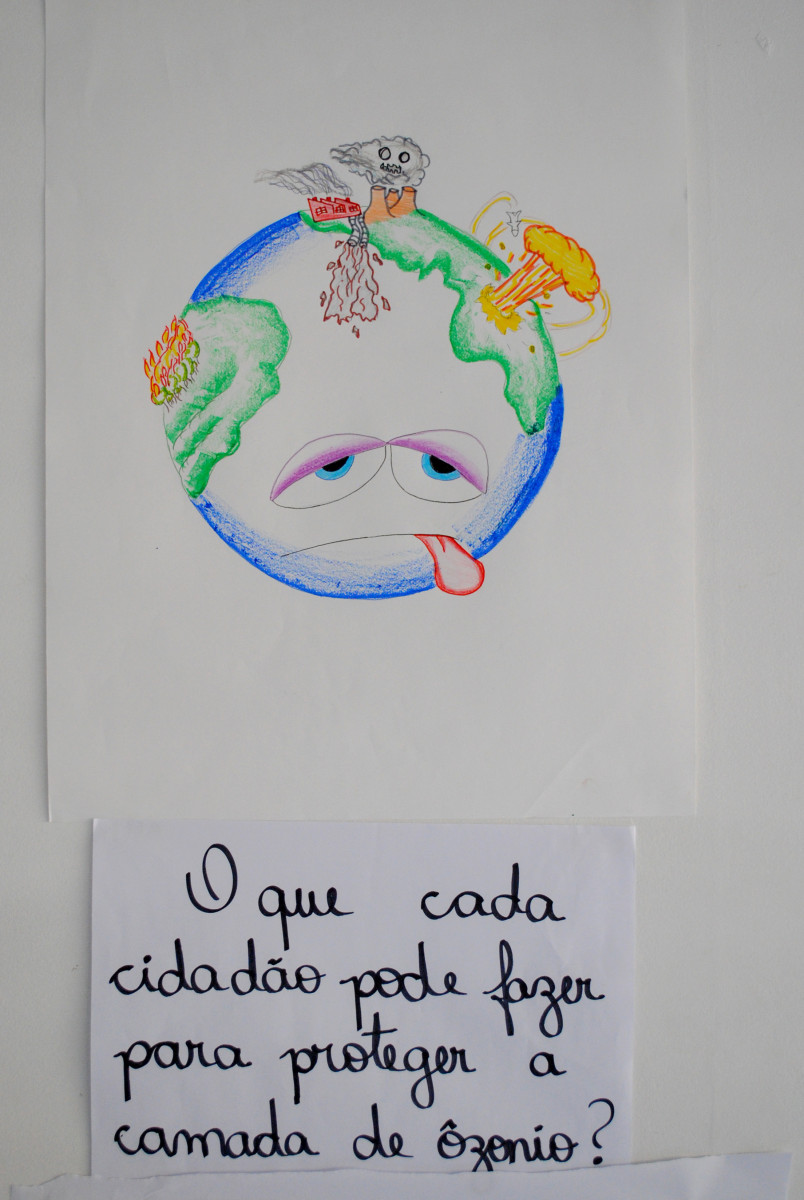 O que cada
cidadão pode fazer
para proteger a
camada de ôzonio?